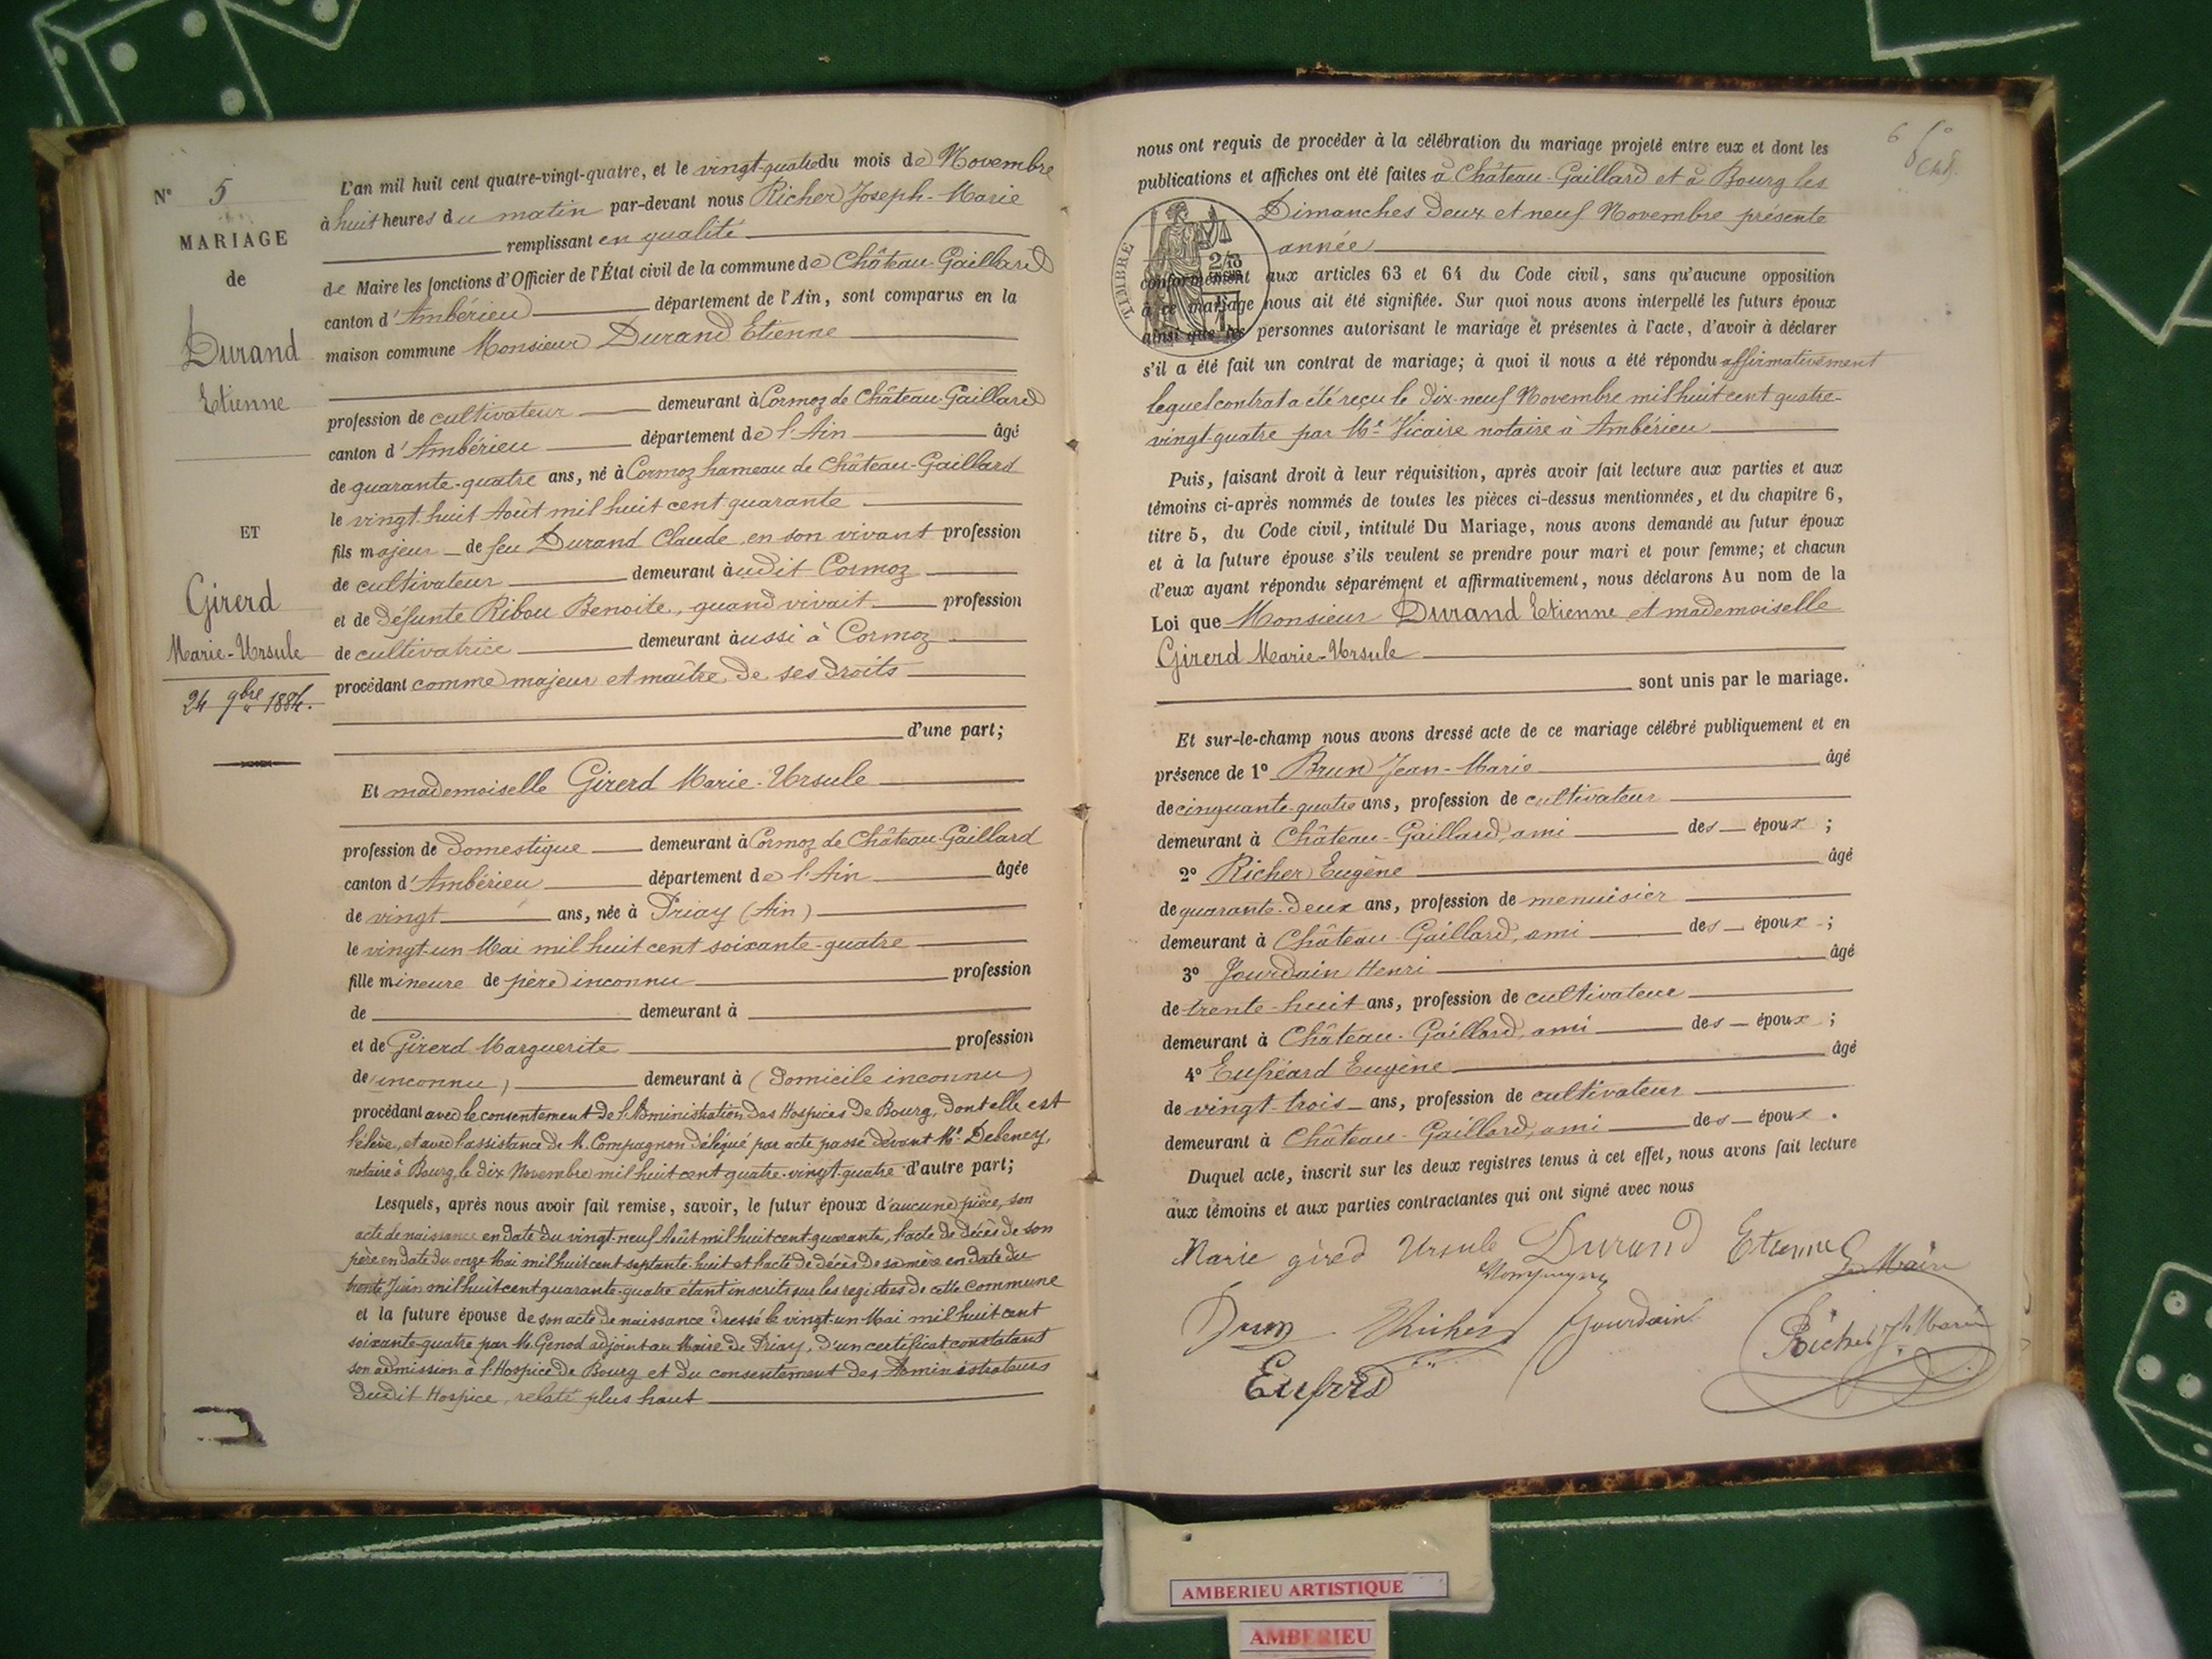 N° 5
MARIAGE
de
Durand
Etienne
ET
Girerd
Marie-Ursule
24 9bre 1884.
L'an mil huit cent quatre-vingt-quatre, et le vingt-quatre du mois de Novembre
à huit heures du matin par-devant nous Richer Joseph-Marie
remplissant en qualité
de Maire les fonctions d'Officier de l'État civil de la commune de Château-Gaillard
canton d'Ambérieu département de l'Ain, sont comparus en la
maison commune Monsieur Durand Etienne
profession de cultivateur demeurant à Cormoz de Château-Gaillard
canton d'Ambérieu département de l'Ain âgé
de quarante-quatre ans, né à Cormoz hameau de Château-Gaillard
le vingt-huit Août mil huit cent quarante
fils majeur de feu Durand Claude, en son vivant profession
de cultivateur demeurant àudit Cormoz
et de défunte Ribou Benoite, quand vivait profession
de cultivatrice demeurant àussi à Cormoz
procédant comme majeur et maître de ses droits
d'une part;
Et mademoiselle Girerd Marie-Ursule
profession de domestique demeurant à Cormoz de Château-Gaillard
canton d'Ambérieu département de l'Ain âgée
de vingt ans, née à Priay (Ain)
le vingt-un Mai mil huit cent soixante-quatre
fille mineure de père inconnu profession
de demeurant à
et de Girerd Marguerite profession
de (inconnu) demeurant à (domicile inconnu)
procédant avec le consentement de l'Administration des Hospices de Bourg, dont elle est
l'élève, et avec l'assistance de M. Compagnon délégué par acte passé devant Me Debeney,
notaire à Bourg, le dix Novembre mil huit cent quatre-vingt-quatre d'autre part;
Lesquels, après nous avoir fait remise, savoir, le futur époux d'aucune pièce, son
acte de naissance en date du vingt-neuf Août mil huit cent quarante, l'acte de décès de son
père en date du onze Mai mil huit cent septante-huit et l'acte de décès de sa mère en date du
trente Juin mil huit cent quarante-quatre étant inscrits sur les registres de cette commune
et la future épouse de son acte de naissance dressé le vingt-un Mai mil huit cent
soixante-quatre par M. Genod adjoint au Maire de Priay, d'un certificat constatant
son admission à l'Hospice de Bourg et du consentement des Administrateurs
dudit Hospice, relaté plus haut
6
nous ont requis de procéder à la célébration du mariage projeté entre eux et dont les
publications et affiches ont été faites à Château-Gaillard et à Bourg les
Dimanches deux et neuf Novembre présente
année
TIMBRE
conformément aux articles 63 et 64 du Code civil, sans qu'aucune opposition
à ce mariage nous ait été signifiée. Sur quoi nous avons interpellé les futurs époux
ainsi que les personnes autorisant le mariage et présentes à l'acte, d'avoir à déclarer
s'il a été fait un contrat de mariage; à quoi il nous a été répondu affirmativement
lequel contrat a été reçu le dix-neuf Novembre mil huit cent quatre-
vingt-quatre par Me Vicaire notaire à Ambérieu
Puis, faisant droit à leur réquisition, après avoir fait lecture aux parties et aux
témoins ci-après nommés de toutes les pièces ci-dessus mentionnées, et du chapitre 6,
titre 5, du Code civil, intitulé Du Mariage, nous avons demandé au futur époux
et à la future épouse s'ils veulent se prendre pour mari et pour femme; et chacun
d'eux ayant répondu séparément et affirmativement, nous déclarons Au nom de la
Loi que Monsieur Durand Etienne et mademoiselle
Girerd Marie-Ursule
sont unis par le mariage.
Et sur-le-champ nous avons dressé acte de ce mariage célébré publiquement et en
présence de 1° Brun Jean-Marie âgé
de cinquante-quatre ans, profession de cultivateur
demeurant à Château-Gaillard, ami des époux ;
2° Richer Eugène âgé
de quarante-deux ans, profession de menuisier
demeurant à Château-Gaillard, ami des époux ;
3° Jourdain Henri âgé
de trente-huit ans, profession de cultivateur
demeurant à Château-Gaillard, ami des époux ;
4° Eufréard Eugène âgé
de vingt-trois ans, profession de cultivateur
demeurant à Château-Gaillard, ami des époux .
Duquel acte, inscrit sur les deux registres tenus à cet effet, nous avons fait lecture
aux témoins et aux parties contractantes qui ont signé avec nous
Marie gired Ursule Durand Etienne
Le Maire
Brun Richer Jourdain
Richer Jh Marie
AMBERIEU ARTISTIQUE
AMBERIEU